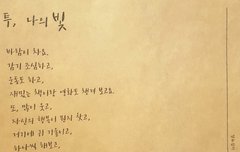 투, 나의 빛
바람이 차요.
감기 조심하고,
운동도 하고,
재밌는 책이랑 영화도 챙겨 보고요.
또, 많이 웃고,
자신의 행복이 뭔지 찾고,
거기에 귀 기울이고,
하나씩 해보고,